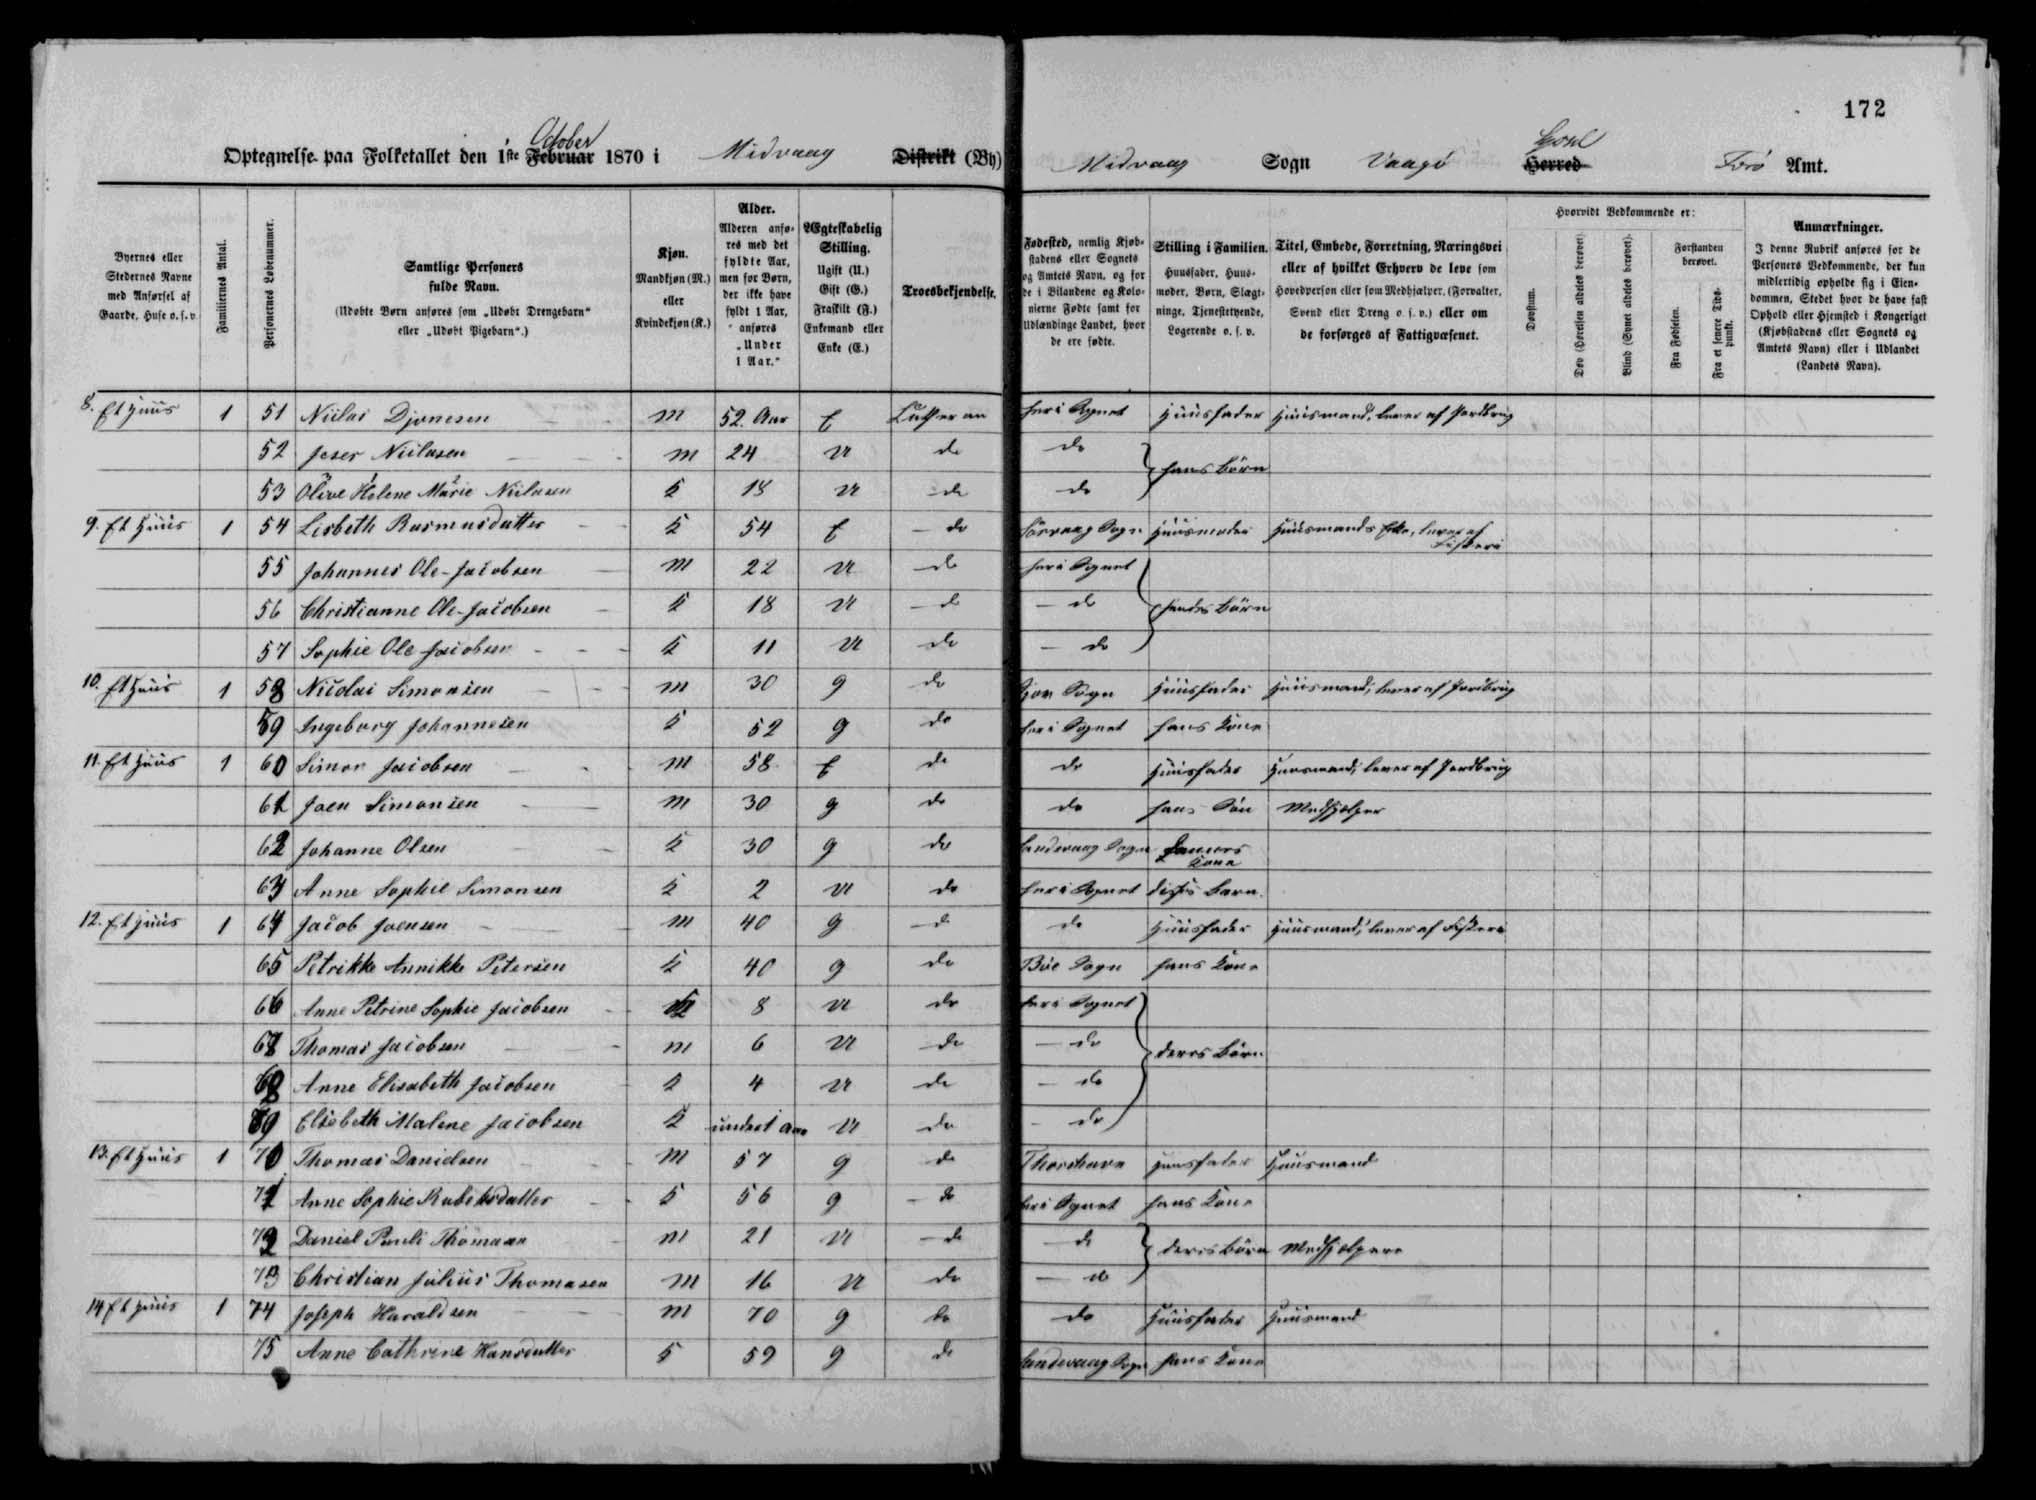 172
October
Optegnelse paa Folketallet den 1ste Februar 1870 i Midvaag Distrikt (By)
Midvaag Sogn Vaagø Herred Færø Amt.
Byernes eller Stedernes Navne med Anførsel af Gaarde, Huse o. s. v.
Familiernes Antal.
Personernes Løbenummer.
Samtlige Personers fulde Navn. (Udøbte Børn anføres som „Udøbt Drengebarn" eller „Udøbt Pigebarn".)
Kjøn. Mandkjøn (M.) eller Kvindekjøn (K.)
Alder. Alderen anføres med det fyldte Aar, men for Børn, der ikke have fyldt 1 Aar, anføres „Under 1 Aar."
Ægteskabelig Stilling. Ugift (U.) Gift (G.) Fraskilt (F.) Enkemand eller Enke (E.)
Troesbekjendelse.
Fødested, nemlig Kjøbstadens eller Sognets og Amtets Navn, og for de i Bilandene og Kolonierne Fødte samt for Udlændinge Landet, hvor de ere fødte.
Stilling i Familien. Huusfader, Huusmoder, Børn, Slægtninge, Tjenestetyende, Logerende o. s. v.
Titel, Embede, Forretning, Næringsvei eller af hvilket Erhverv de leve som Hovedperson eller som Medhjælper. (Forvalter, Svend eller Dreng o. s. v.) eller om de forsørges af Fattigvæsenet.
Hvorvidt Vedkommende er:
Døvstum.
Døv (Hørelsen aldeles berøvet).
Blind (Synet aldeles berøvet).
Forstanden berøvet.
Fra Fødselen.
Fra et senere Tidspunkt.
Anmærkninger. I denne Rubrik anføres for de Personers Vedkommende, der kun midlertidig opholde sig i Eiendommen, Stedet hvor de have fast Ophold eller Hjemsted i Kongeriget (Kjøbstadens eller Sognets og Amtets Navn) eller i Udlandet (Landets Navn).
8. Et Huus 1 51 Niilas Djonesen M 52. Aar E Lutheran her i Sognet Huusfader Huusmand, lever af Jordbrug
52 Joser Niilasen M 24 U do do hans Børn
53 Olive Helene Marie Niilasen K 18 U do do
9. Et Huus 1 54 Lisbeth Rasmusdatter K 54 E do Sørvaag Sogn Huusmoder Huusmands Enke, lever af Fiskeri
55 Johannes Ole-Jacobsen M 22 U do her i Sognet
56 Christianne Ole-Jacobsen K 18 U do do hendes Børn
57 Sophie Ole Jacobsen K 11 U do do
10. Et Huus 1 58 Nicolai Simonsen M 30 G do Sogn Huusfader Huusmand, lever af Jordbrug
59 Ingeborg Johannesen K 52 G do her i Sognet hans Kone
11. Et Huus 1 60 Simon Jacobsen M 58 E do do Huusfader Huusmand, lever af Jordbrug
61 Joen Simonsen M 30 G do do hans Søn Medhjælper
62 Johanne Olsen K 30 G do Sandevaag Sogn Sønnens Kone
63 Anne Sophie Simonsen K 2 U do her i Sognet disses Barn.
12. Et Huus 1 64 Jacob Joensen M 40 G do do Huusfader Huusmand, lever af Fiskeri
65 Petrikke Annikke Petersen K 40 G do Bøe Sogn hans Kone
66 Anne Petrine Sophie Jacobsen K 8 U do her i Sognet
67 Thomas Jacobsen M 6 U do do deres Børn
68 Anne Elisabeth Jacobsen K 4 U do do
69 Elsebeth Malene Jacobsen K under 1 Aar U do do
13. Et Huus 1 70 Thomas Danielsen M 57 G do Thorshavn Huusfader Huusmand
71 Anne Sophie Rubeksdatter K 56 G do her i Sognet hans Kone
72 Daniel Pauli Thomasen M 21 U do do deres Børn Medhjælpere
73 Christian Julius Thomasen M 16 U do do
14 Et Huus 1 74 Joseph Haraldsen M 70 G do do Huusfader Huusmand
75 Anne Cathrine Hansdatter K 59 G do Sandevaag Sogn hans Kone